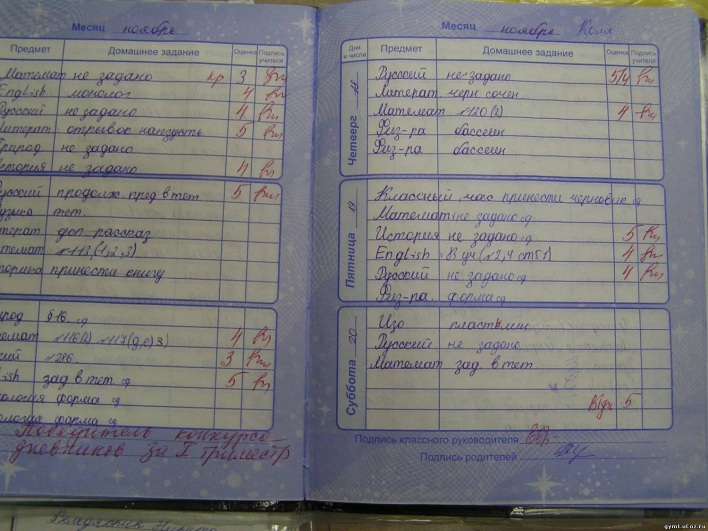 Месяц ноябрь
Предмет Домашнее задание Оценка Подпись учителя
Математ не задано 3
English монолог 4
Русский не задано 4
Литерат отрывок наизусть 5
Природ не задано
История не задано 4
Русский продолж. пред в тет. 5
Музыка тет.
Литерат доп рассказ
Математ №113(1,2,3)
принести книгу
Природ §16.
Математ №116(2) №117(д,е)3) 4
Русский №286. 3
English зад в тет. 5
форма
форма
Победитель конкурса
дневников за I триместр
Месяц ноябрь
Дни и числа Предмет Домашнее задание Оценка Подпись учителя
Четверг 18
Русский не задано 5/4
Литерат. черн сочен
Математ №120(2) 4
Физ-ра бассеин
Физ-ра бассеин
Пятница 19
Классный час принести черновик
Математ не задано
История не задано 5
English В уч (№2,4 ст51) 4
Русский не задано 4
Физ-ра. форма
Суббота 20
Изо пластилин
Русский не задано
Математ зад. в тет
5
Подпись классного руководителя
Подпись родителей
gym1.ufoz.ru